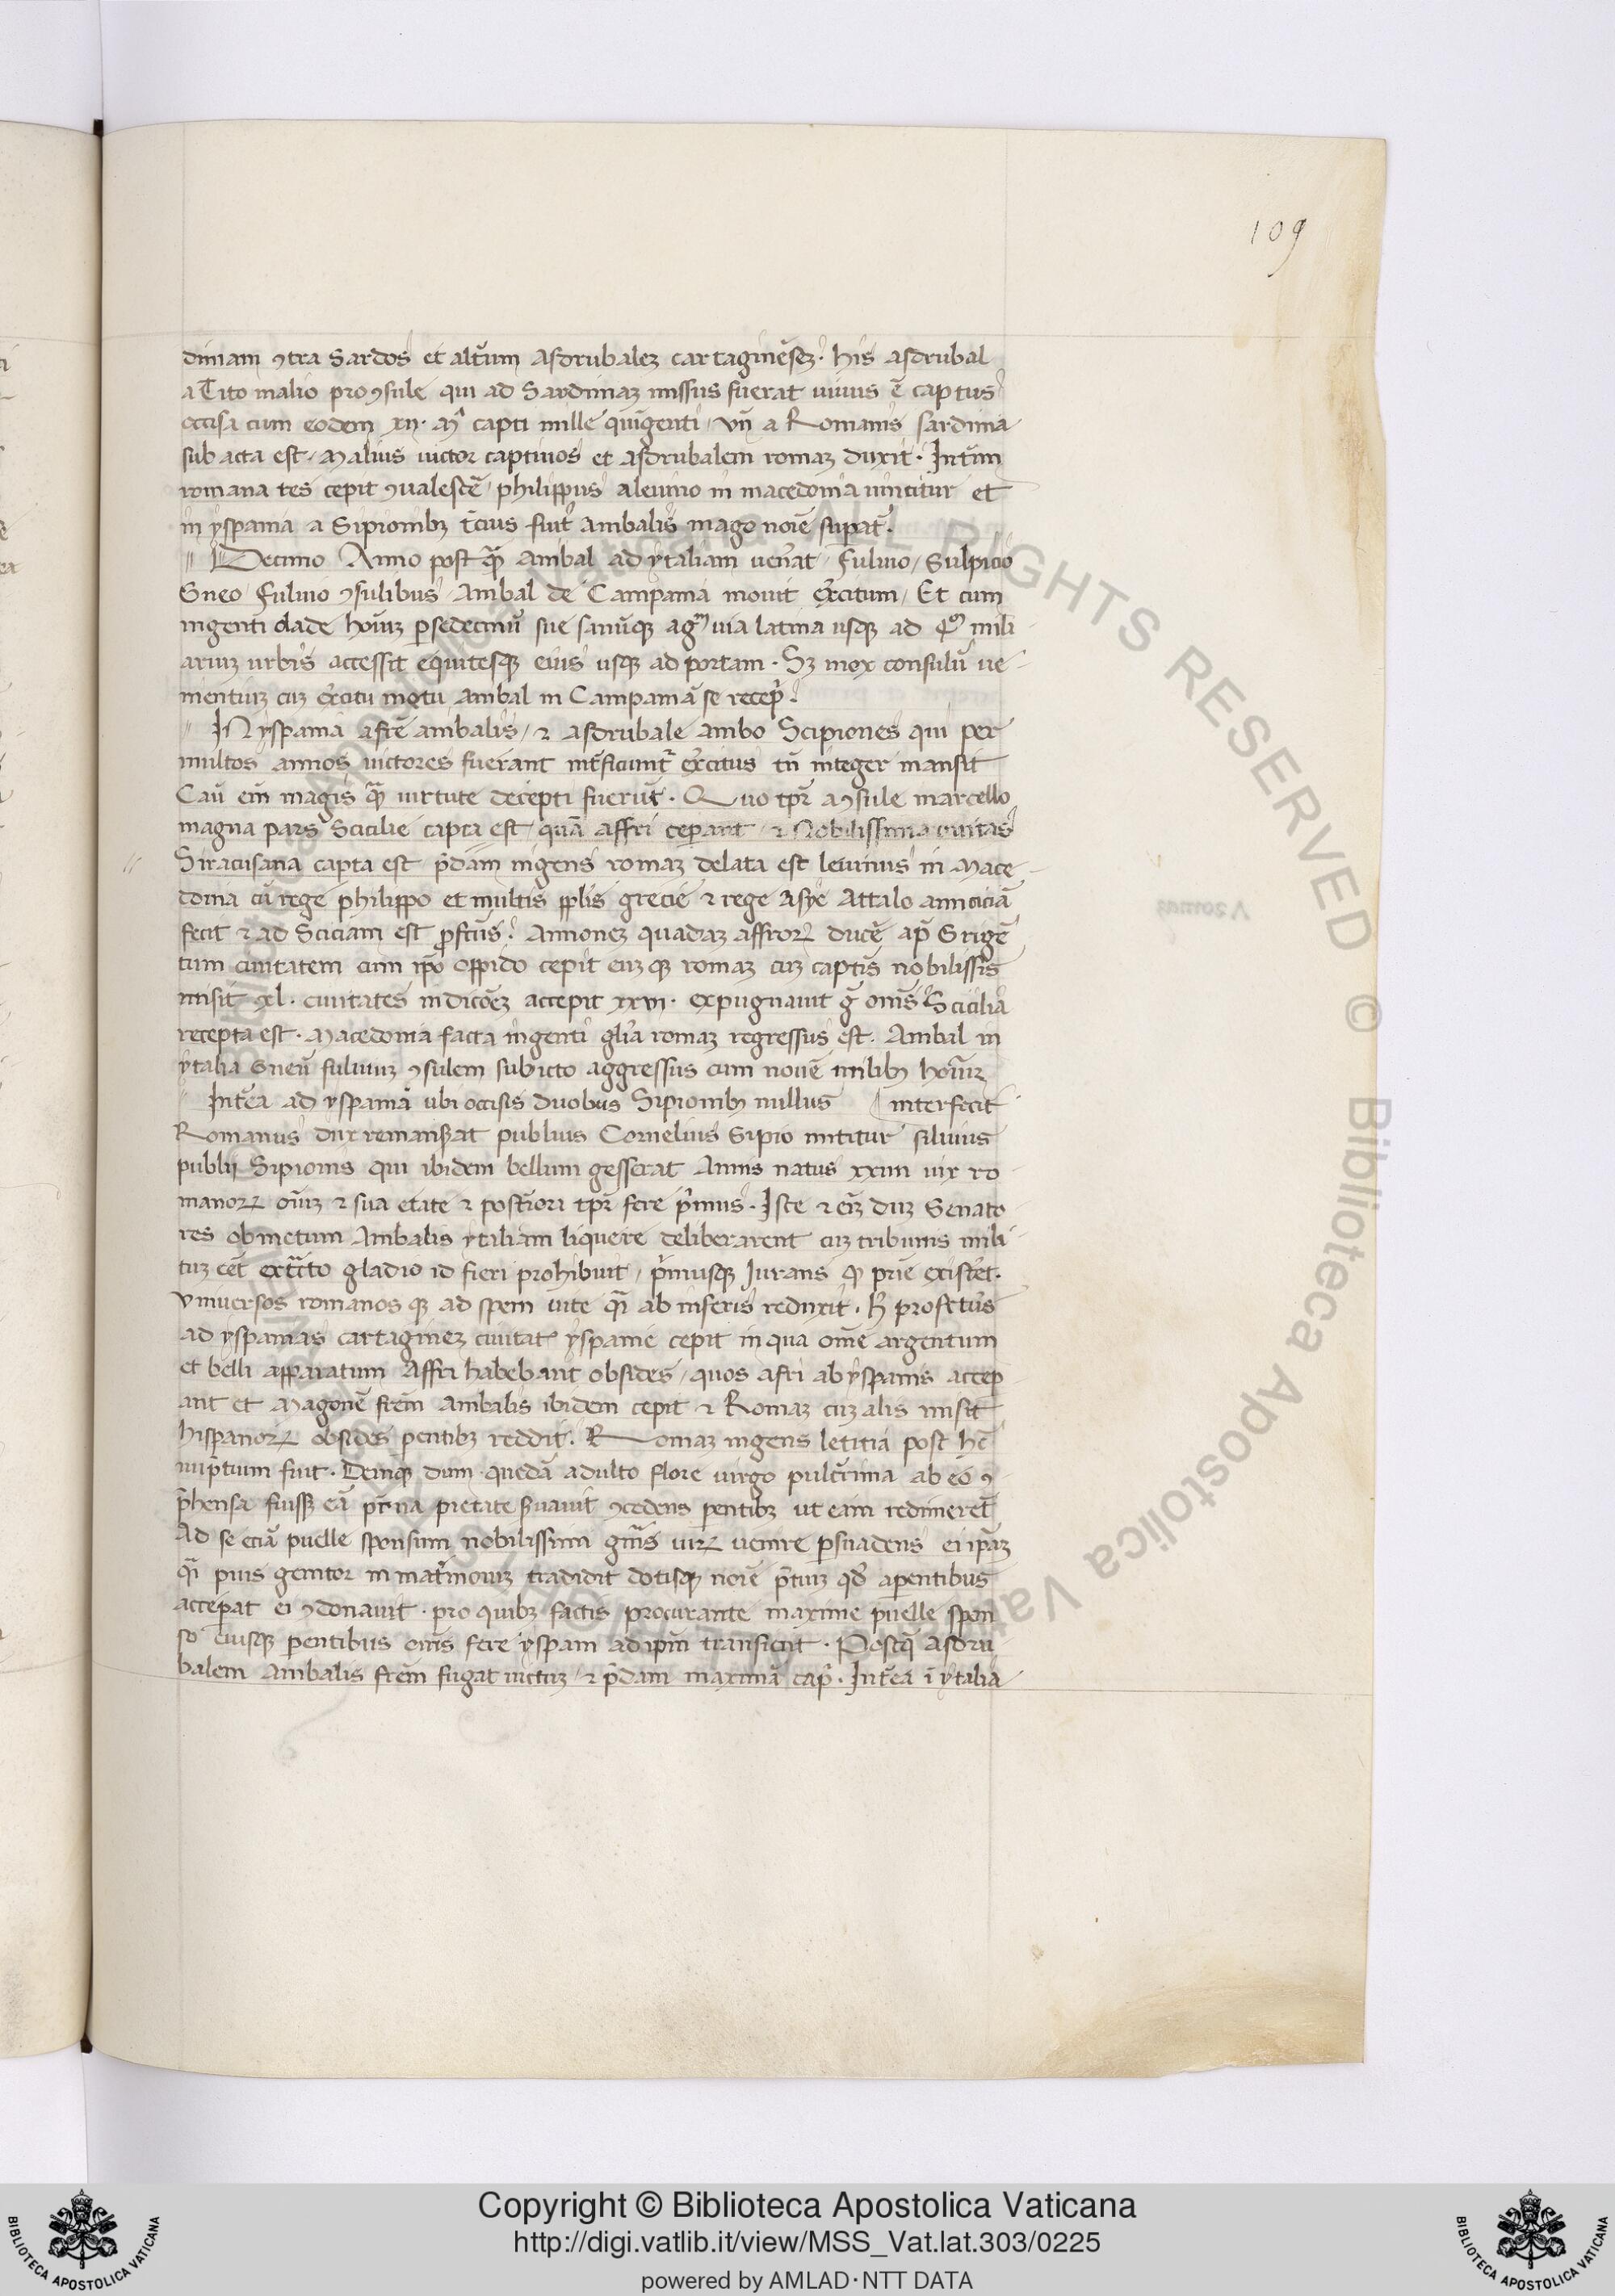 109
diniam ꝯtra Sardos et altum̄ asdrubalez cartaginēsez. his asdrubal
a Tito malio pro ꝯsule qui ad Sardiniaz missus fuerat uiuus ē captus
occisa cum eodem xii. m̄ capti mille quīgenti / vn̄ a Romanis sardinia
sub acta est. Malius uictor captiuos et asdrubalem romaz duxit. Int̄im
romana res cepit ꝯualescē / philippus a leuino in macedonia uincitur et
in yspania a Sipionibꝫ t̄cius fuit anibalis mago noīe supat.
Decimo Anno post qm̄ anibal ad ytaliam uen̄at / fuluio / Sulpicio
Gneo fuluio ꝯsulibus Anibal de Campania mouit ex̄citum / Et cum
ingenti clade
uia latina usqꝫ ad qͦ mili
ariuz urbis accessit equitesqꝫ eius usqꝫ ad portam. Sꝫ mox consulū ue
nientiuz cuz ex̄citu motu anibal in Campaniā se recep̄.
IN yspania a frē anibalis / ⁊ asdrubale ambo Scipiones qui per
multos annos uictores fuerant int̄ficiunt̄ ex̄citus tn̄ integer mansit
Cau em̄ magis qm̄ uirtute decepti fuerūt. Quo tpr̄ a ꝯsule marcello
magna pars Scicilie capta est / quā affri ceperant / ⁊ Nobilissima ciuitas
Siracusana capta est p̄dam ingens romaz delata est leuinus in Mace
donia cū rege philippo et multis pplis grecie ⁊ rege Asye Attalo amiciciā
fecit ⁊ ad Sciciam est p̄fctus. Annonez quadaz affroꝝ ducē ap̄ Grigē
tum ciuitatem cum ip̄o oppido cepit euz qꝫ romaz cuz captis nobilissīs
misit xl. ciuitates in diciōez accepit xxvi. expugnauit g̅ om̄s Scicilia
recepta est. Macedonia facta ingenti glīa romaz regressus est. Anibal in
ytalia Gneū fuluiuz ꝯsulem subicto aggressus cum nouē milibꝫ houīz
Int̄ea ad yspaniā ubi occisis duobus Sipionibꝫ nullus interfecit
Romanus dux remanserat publius Cornelius Sipio mittitur filiuius
publij Sipionis qui ibidem bellum gesserat Annis natus xxiiii uir ro
manoꝝ oīuz ⁊ sua etate ⁊ post̄iori tpr̄ fere p̄mus. Iste ⁊ em̄ duz Senato
res ob metum Anibalis ytiliam liquere deliberarent cuz tribunis mili
tuz cēt extracto gladio id fieri prohibuit / p̄musqꝫ Iurans
existēt.
vniuersos romanos qꝫ ad spem uite qm̄ ab inferis reduxit. h̄ profectus
ad yspanias cartaginez ciuitat yspanie cepit in qua omē argentum
et belli apparatum Affri habebant obsides / quos afri ab yspanis accep
ant et Magonē frēm Anibalis ibidem cepit ⁊ Romaz cuz alis misit
hispanoꝝ obsides pentibꝫ reddit. Romaz ingens letitia post hē
nuptium fuit. Deinqꝫ dum quedā adulto flore uirgo pulcrima ab eo ꝯ
p̄hensa fuisꝫ eā pt̄na pietate s̄uauit ꝯcedens pentibꝫ ut eam redimeret
Ad se eciā puelle sponsum nobilissimi gn̄is uiꝝ uenire p̄suadens ei ip̄az
qm̄ pius genitor in mat̄moniuz tradidit dotisqꝫ noīe p̄tiuz qd̄ aparentibus
accepat ei ꝯdonauit. pro quibꝫ factis procurante maxime puelle spon
so eiusqꝫ pentibus om̄s fere yspani ad ip̄m transierit. Postqm̄ asdru
balem Anibalis frēm fugat uictuz / ⁊ p̄dam maximā cap̄. Int̄ea ī ytalia
Copyright © Biblioteca Apostolica Vaticana
http://digi.vatlib.it/view/MSS_Vat.lat.303/0225
powered by AMLAD·NTT DATA